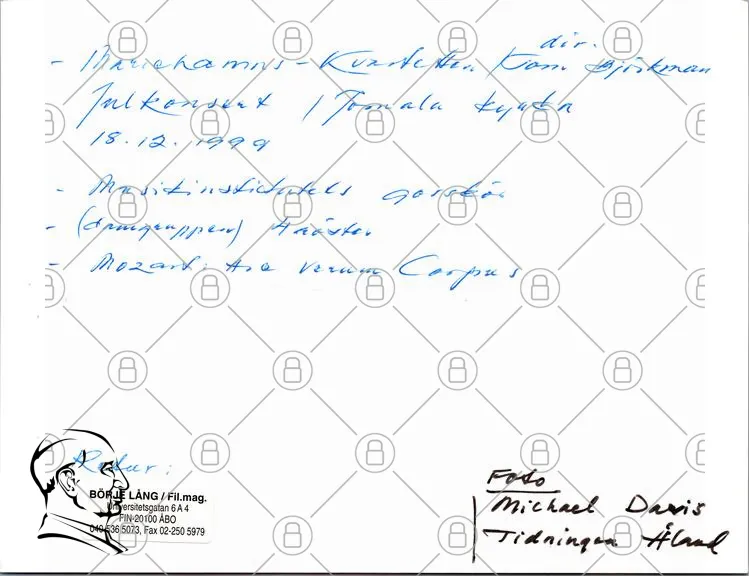 dir.
- Mariehamns-Kvartetten / Tom Björkman
Julkonsert i Jomala kyrka
18.12.1999
- Musikinstitutets gosskör
- (damgruppen)
- Mozart: Ave verum Corpus
Retur:
BÖRJE LÅNG / Fil.mag.
Universitetsgatan 6 A 4
FIN-20100 ÅBO
040-536 5073, Fax 02-250 5979
Foto
Michael Davis
Tidningen Åland